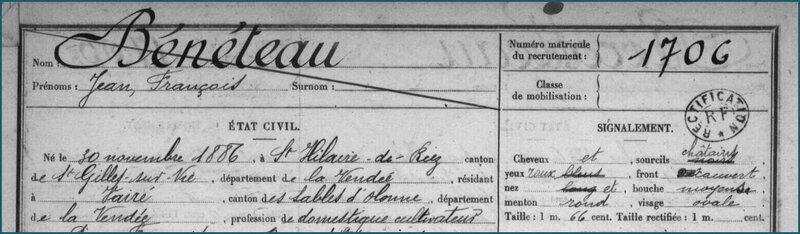 Nom : Bénéteau
Prénoms : Jean, François Surnom :
Numéro matricule du recrutement : 1706
Classe de mobilisation :
RECTIFICATION RF
ÉTAT CIVIL.
Né le 30 novembre 1886, à St Hilaire-de-Riez canton
de St Gilles-sur-Vie, département de la Vendée, résidant
à Vairé, canton des Sables d'Olonne, département
de la Vendée, profession de domestique cultivateur
SIGNALEMENT.
Cheveux et sourcils châtains
yeux roux front découvert
nez et bouche moyenne
menton rond visage ovale
Taille : 1 m. 66 cent. Taille rectifiée : 1 m. cent.